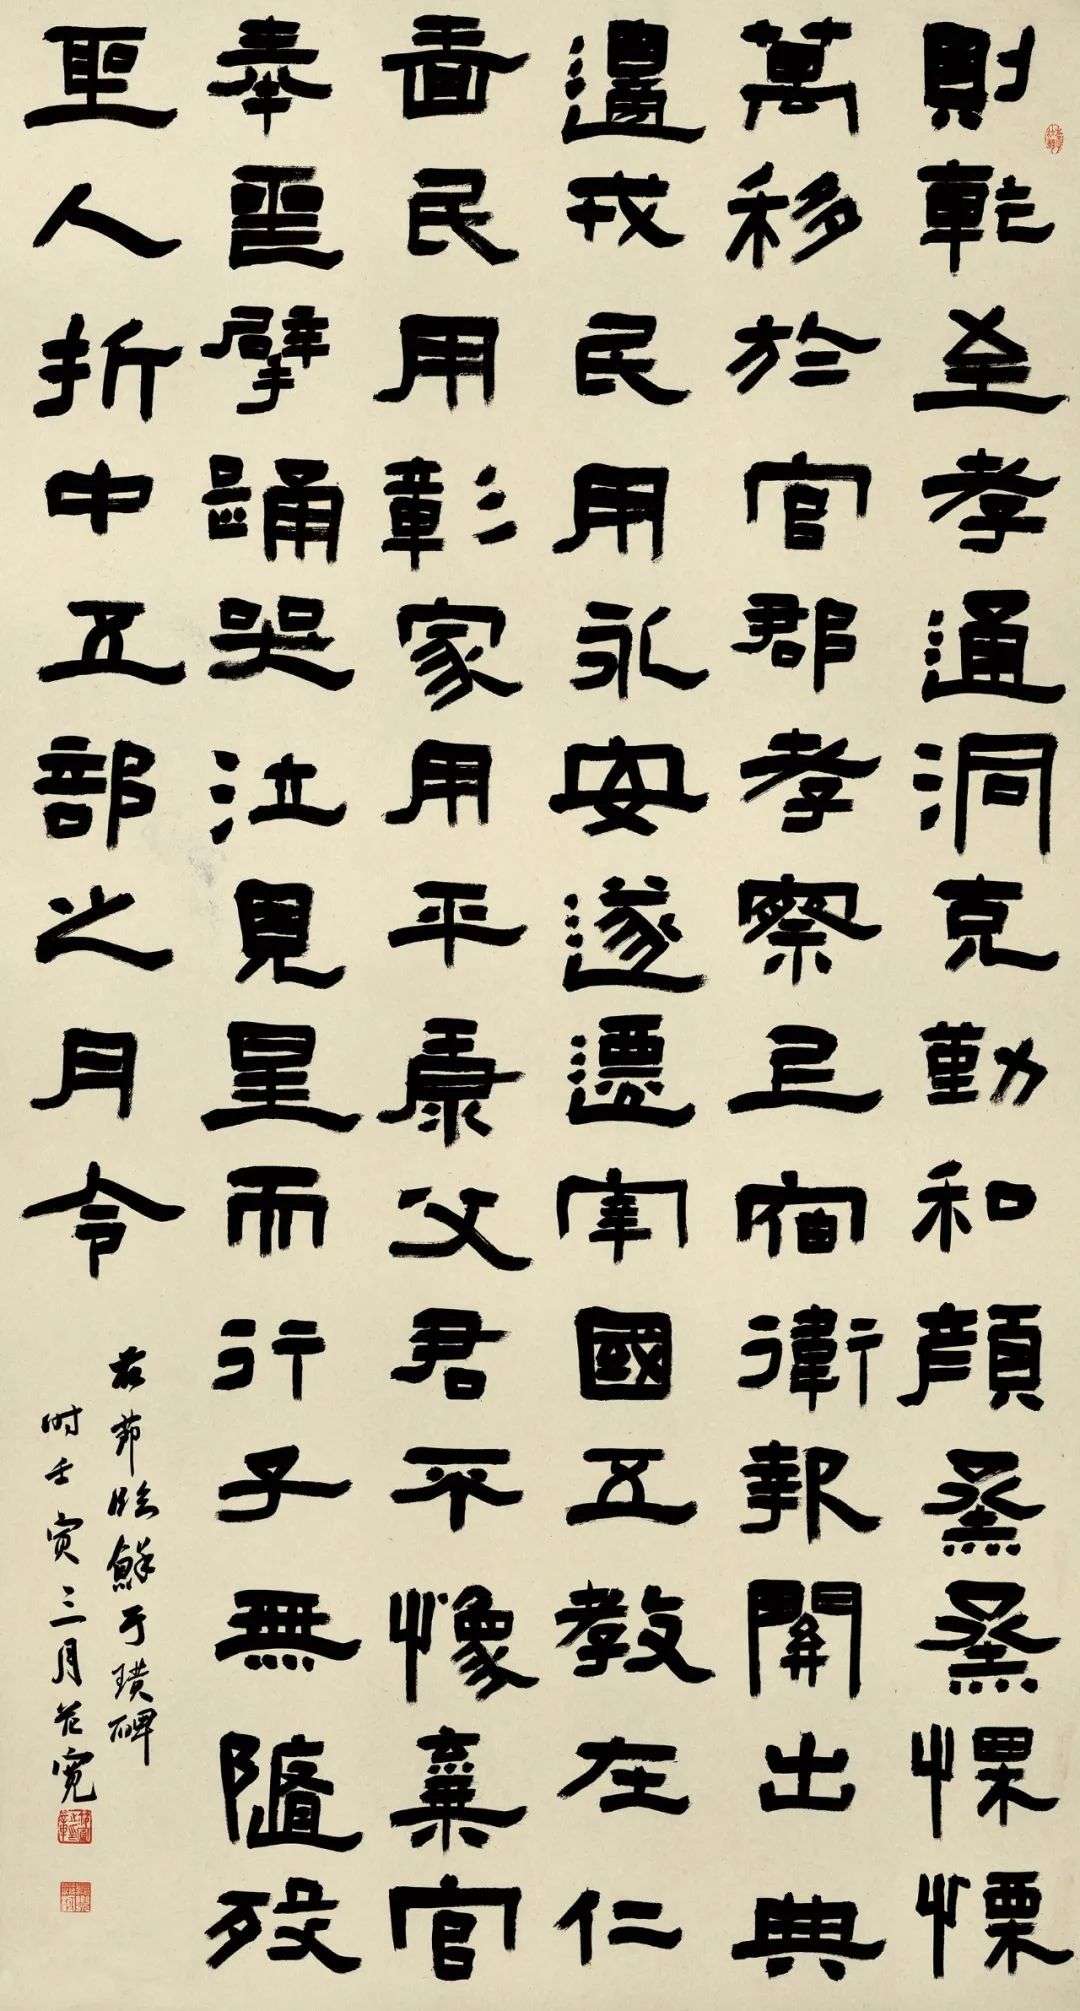 則乾至孝通洞克勤和顏烝烝慄慄
萬移於官郡孝察上宿衛報關出典
邊戎民用永安遂遷宰國五教在仁
啚民用彰家用平康父君不像棄官
奉喪擗踊哭泣見星而行子無隨歿
聖人折中五部之月令
右節臨鮮于璜碑
時壬寅三月花寬